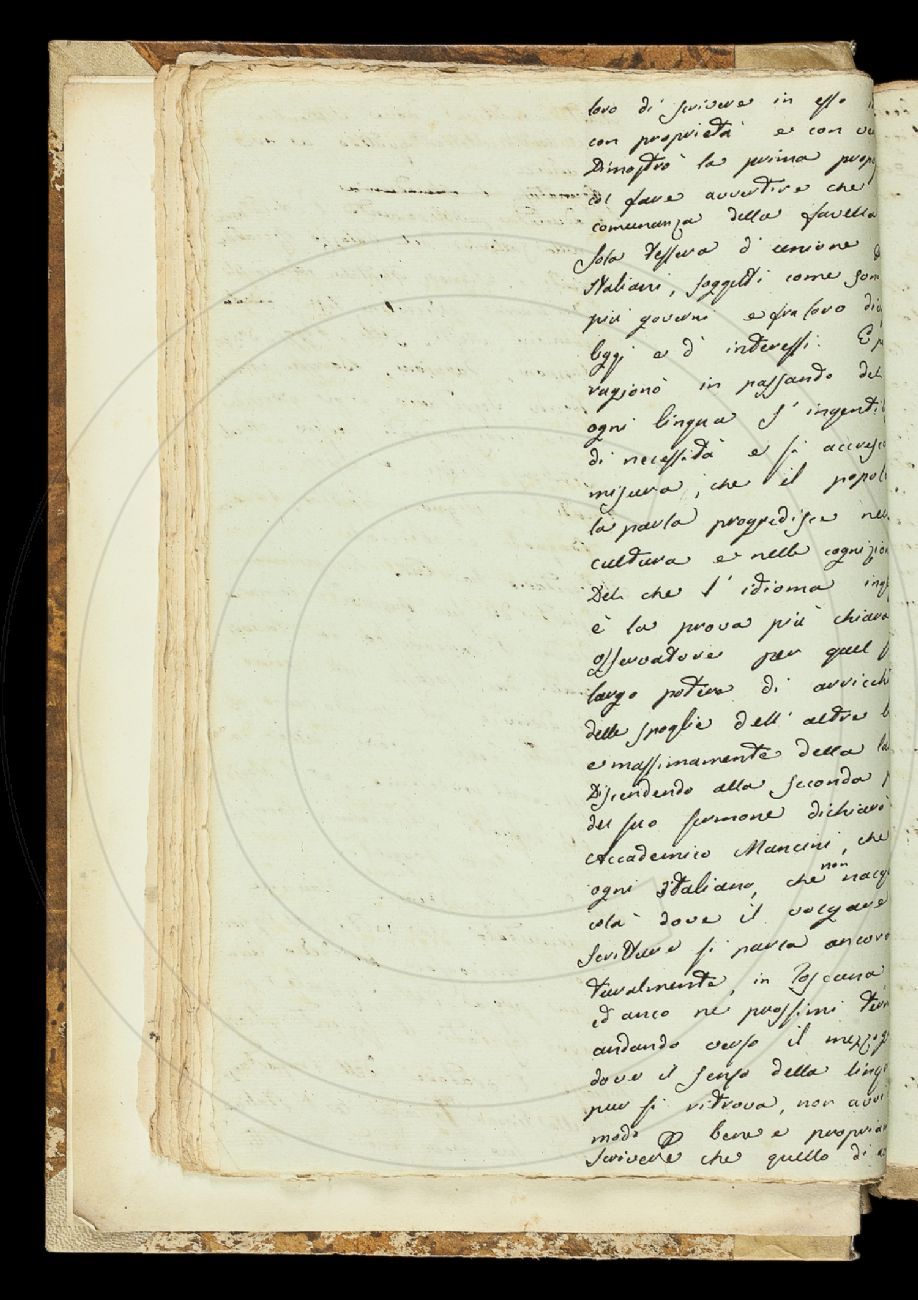 loro di scrivere in esso
con proprietà e con
Dimostrò la prima prop
col fare avvertire che
comunanza della favella
sola tessera d' unione
Italiani, soggetti come son
più governi e fra loro di
leggi e d' interessi. E
ragionò in passando del
ogni lingua s' ingenti
di necessità e si accresc
misura, che il popol
la parla progredisce nel
cultura e nelle cognizion
Del che l' idioma ing
è la prova più chiara
osservatore per quel
largo potere di arricch
delle spoglie dell' altre
e massimamente della la
Discendendo alla seconda
del suo sermone dichiarò
Accademico Mancini, che
ogni Italiano, che non nacq
colà dove il volgare
scritture si parla ancora
turalmente, in Toscana
ed anco ne' prossimi terr
andando verso il mezzog
dove il senso della lingu
pur si ritrova, non avvi
modo bene e propria
scrivere che quello di